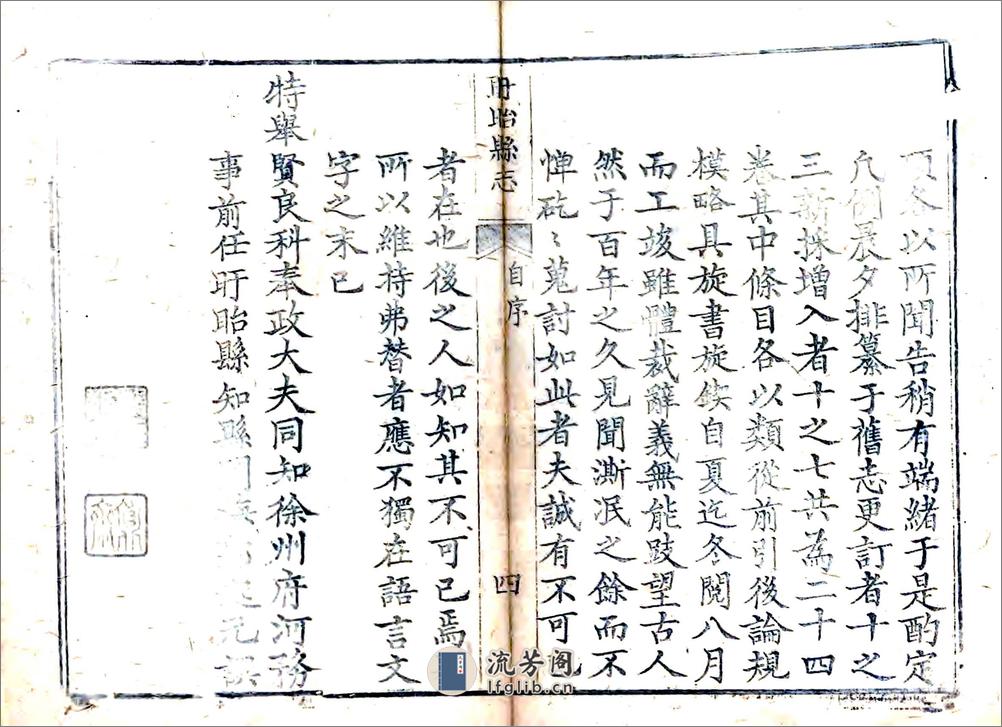 頭各以所聞告稍有端緒于是酌定
凡例晨夕排纂于舊志更訂者十之
三新採增入者十之七共為二十四
卷其中條目各以類從前引後論規
模略具旋書旋鋟自夏迄冬閱八月
而工竣雖體裁辭義無能跂望古人
然于百年之久見聞澌泯之餘而不
憚矻〻蒐討如此者夫誠有不可已
盱眙縣志
自序
四
者在也後之人如知其不可已焉
所以維持弗替者應不獨在語言文
字之末已
特舉賢良科奉政大夫同知徐州府河務
事前任盱眙縣知縣
流芳阁
lfglib.cn